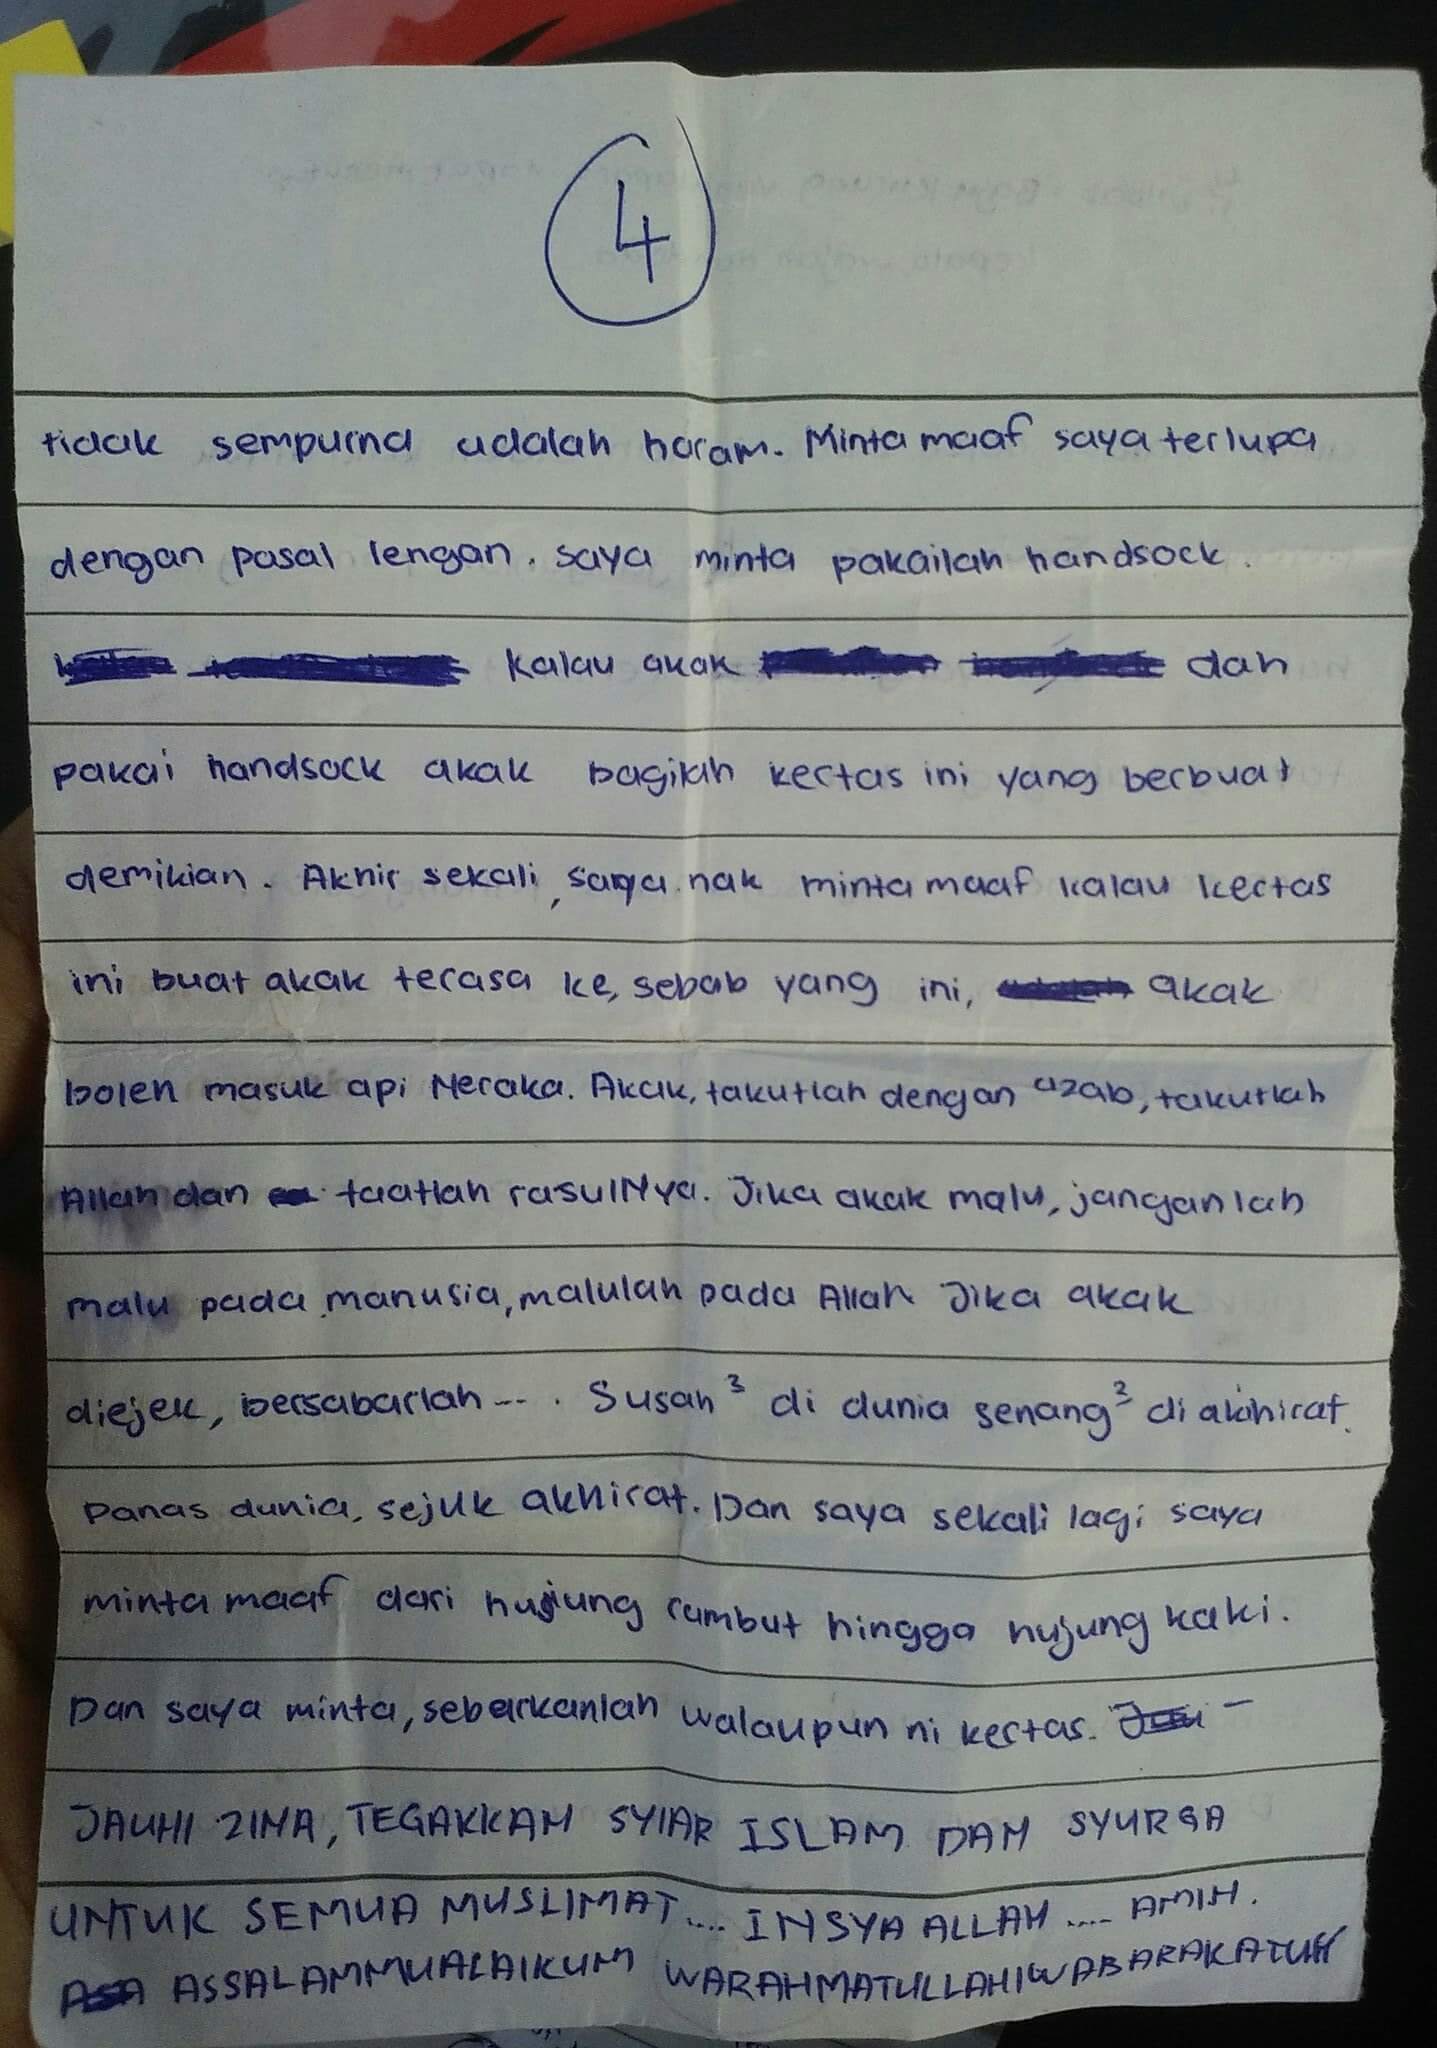 4
tidak sempurna adalah haram. Minta maaf saya terlupa
dengan pasal lengan. saya minta pakailah handsock.
kalau akak dah
pakai handsock akak bagilah kertas ini yang berbuat
demikian. Akhir sekali, saya nak minta maaf kalau kertas
ini buat akak terasa ke, sebab yang ini, akak
boleh masuk api Neraka. Akak, takutlah dengan azab, takutlah
Allah dan taatlah rasulNya. Jika akak malu, janganlah
malu pada manusia, malulah pada Allah Jika akak
diejek, bersabarlah.... Susah³ di dunia senang³ di akhirat.
Panas dunia, sejuk akhirat. Dan saya sekali lagi saya
minta maaf dari hujung rambut hingga hujung kaki.
Dan saya minta, sebarkanlah walaupun ni kertas. -
JAUHI ZINA, TEGAKKAN SYIAR ISLAM DAN SYURGA
UNTUK SEMUA MUSLIMAT.... INSYA ALLAH .... AMIN.
ASSALAMMUALAIKUM WARAHMATULLAHIWABARAKATUH